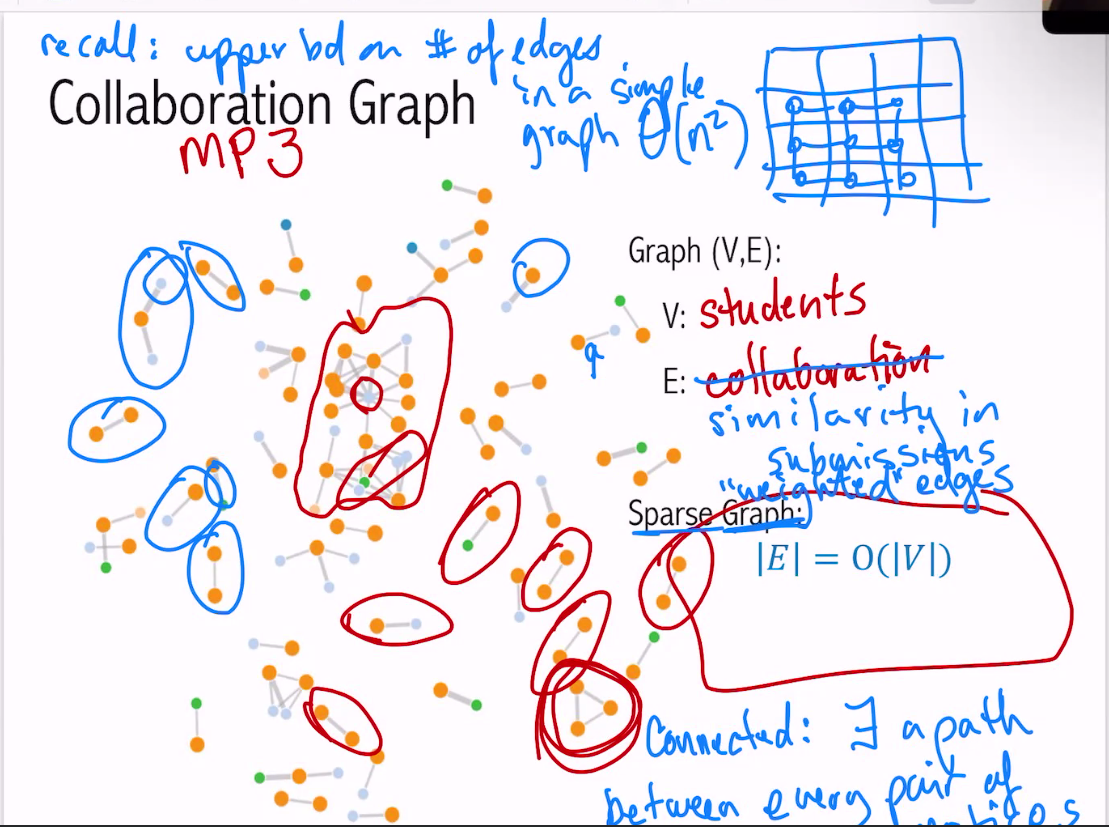 recall: upper bd on # of edges
in a simple
graph Θ(n²)
Collaboration Graph
MP3
Graph (V,E):
V: students
E: collaboration
similarity in
submissions
"weighted" edges
Sparse Graph:
|E| = O(|V|)
Connected: ∃ a path
between every pair of